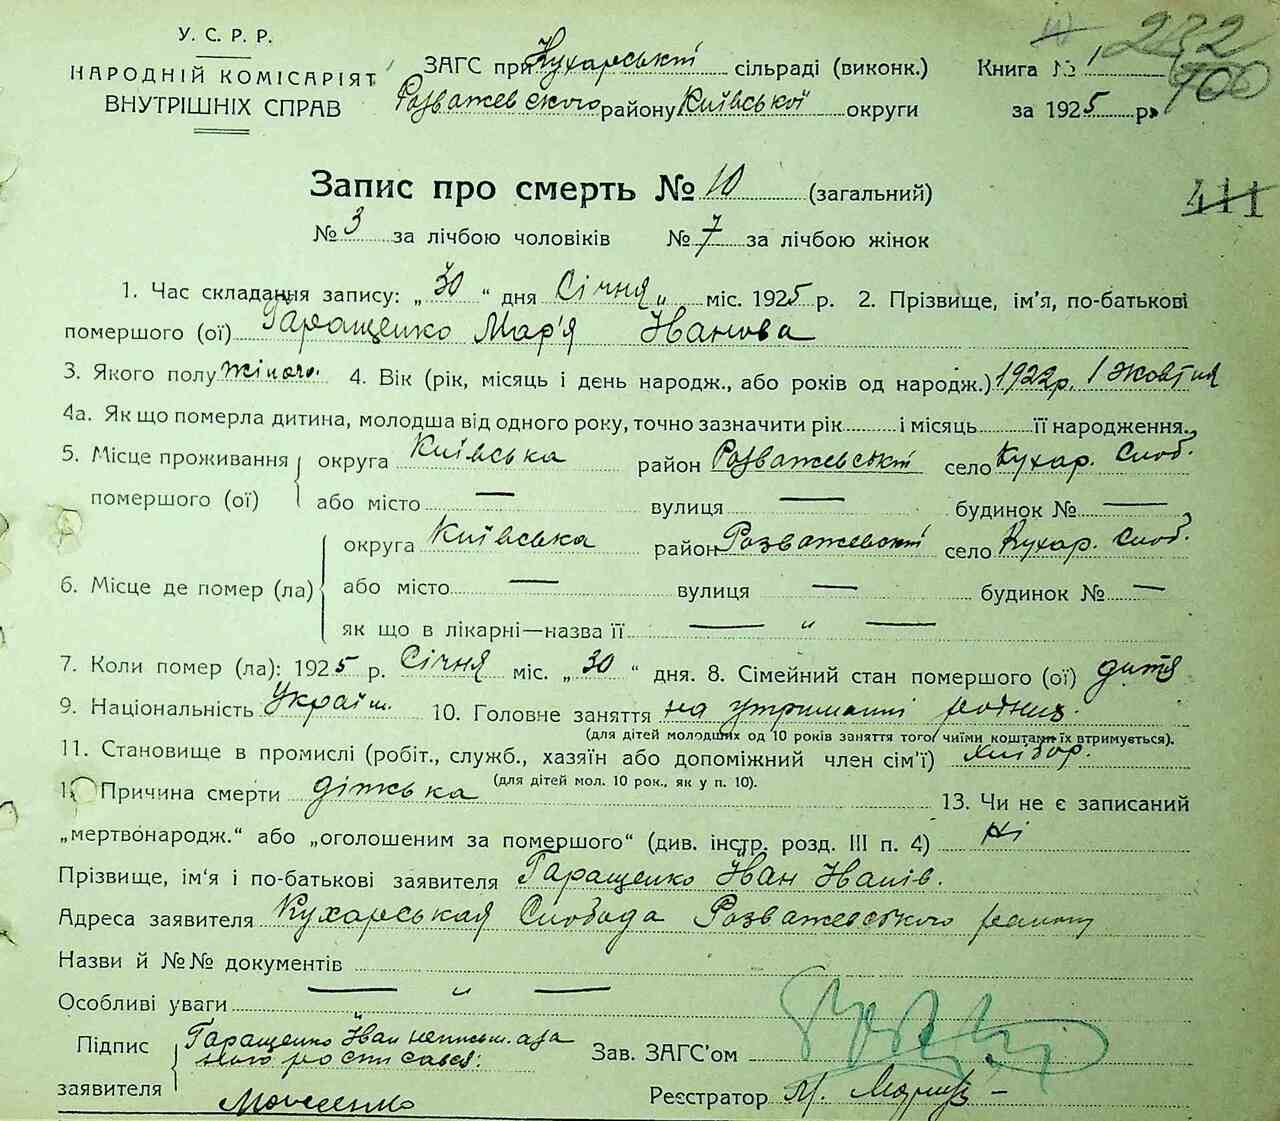 У. С. Р. Р.
НАРОДНІЙ КОМІСАРІЯТ
ВНУТРІШНІХ СПРАВ
ЗАГС при Кухарські сільраді (виконк.)
Розважевского району Київської округи
Книга № 1
за 1925 р.
232
100
411
Запис про смерть № 10 (загальний)
№ 3 за лічбою чоловіків № 7 за лічбою жінок
1. Час складання запису: „ 30 “ дня Січня „ міс. 1925 р. 2. Прізвище, ім'я, по-батькові
помершого (ої) Гаращенко Мар'я Іванова
3. Якого полу жіноч. 4. Вік (рік, місяць і день народж., або років од народж.) 1922р. 1 жовтня
4а. Як що померла дитина, молодша від одного року, точно зазначити рік і місяць її народження
5. Місце проживання округа Київська район Розважевські село Кухар. Слоб.
помершого (ої) або місто — вулиця — будинок № —
округа Київська район Розважевскі село Кухар. Слоб.
6. Місце де помер (ла) або місто — вулиця — будинок № —
як що в лікарні—назва її — „ —
7. Коли помер (ла): 1925 р. Січня міс. „ 30 “ дня. 8. Сімейний стан помершого (ої) дитя
9. Національність Україн. 10. Головне заняття на утриманні родниц.
(для дітей молодших од 10 років заняття того, чиїми коштами їх втримується).
11. Становище в промислі (робіт., служб., хазяїн або допоміжний член сім'ї) хлібор.
(для дітей мол. 10 рок., як у п. 10).
Причина смерти дітська 13. Чи не є записаний
„мертвонародж.“ або „оголошеним за помершого“ (див. інстр. розд. III п. 4) Ні
Прізвище, ім'я і по-батькові заявителя Гаращенко Іван Іванів.
Адреса заявителя Кухарськая Слобода Розважевського району
Назви й №№ документів
Особливі уваги — „ —
Підпис
заявителя
Гаращенко Іван неписьм. аза
його росписався:
Моисеенко
Зав. ЗАГС'ом
Реєстратор М.